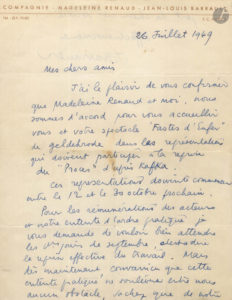 COMPAGNIE - MADELEINE RENAUD - JEAN-LOUIS BARRAULT
26 Juillet 1949
Mes chers amis
J'ai le plaisir de vous confirmer
que Madeleine Renaud et moi, nous
sommes d'accord pour vous accueillir
vous et votre spectacle "Fastes d'Enfer"
de gelderode dans les représentations
qui doivent participer à la reprise
du "Procès" d'après KAFKA.
Ces représentations doivent commencer
entre le 12 et le 30 octobre prochain.
Pour les rémunérations des acteurs
et notre entente d'ordre pratique je
vous demande de vouloir bien attendre
les 1ers jours de septembre, c'est à dire
la reprise effective du travail. Mais
dès maintenant convaincu que cette
entente pratique ne soulèvera entre nous
aucun obstacle, sachez que de notre